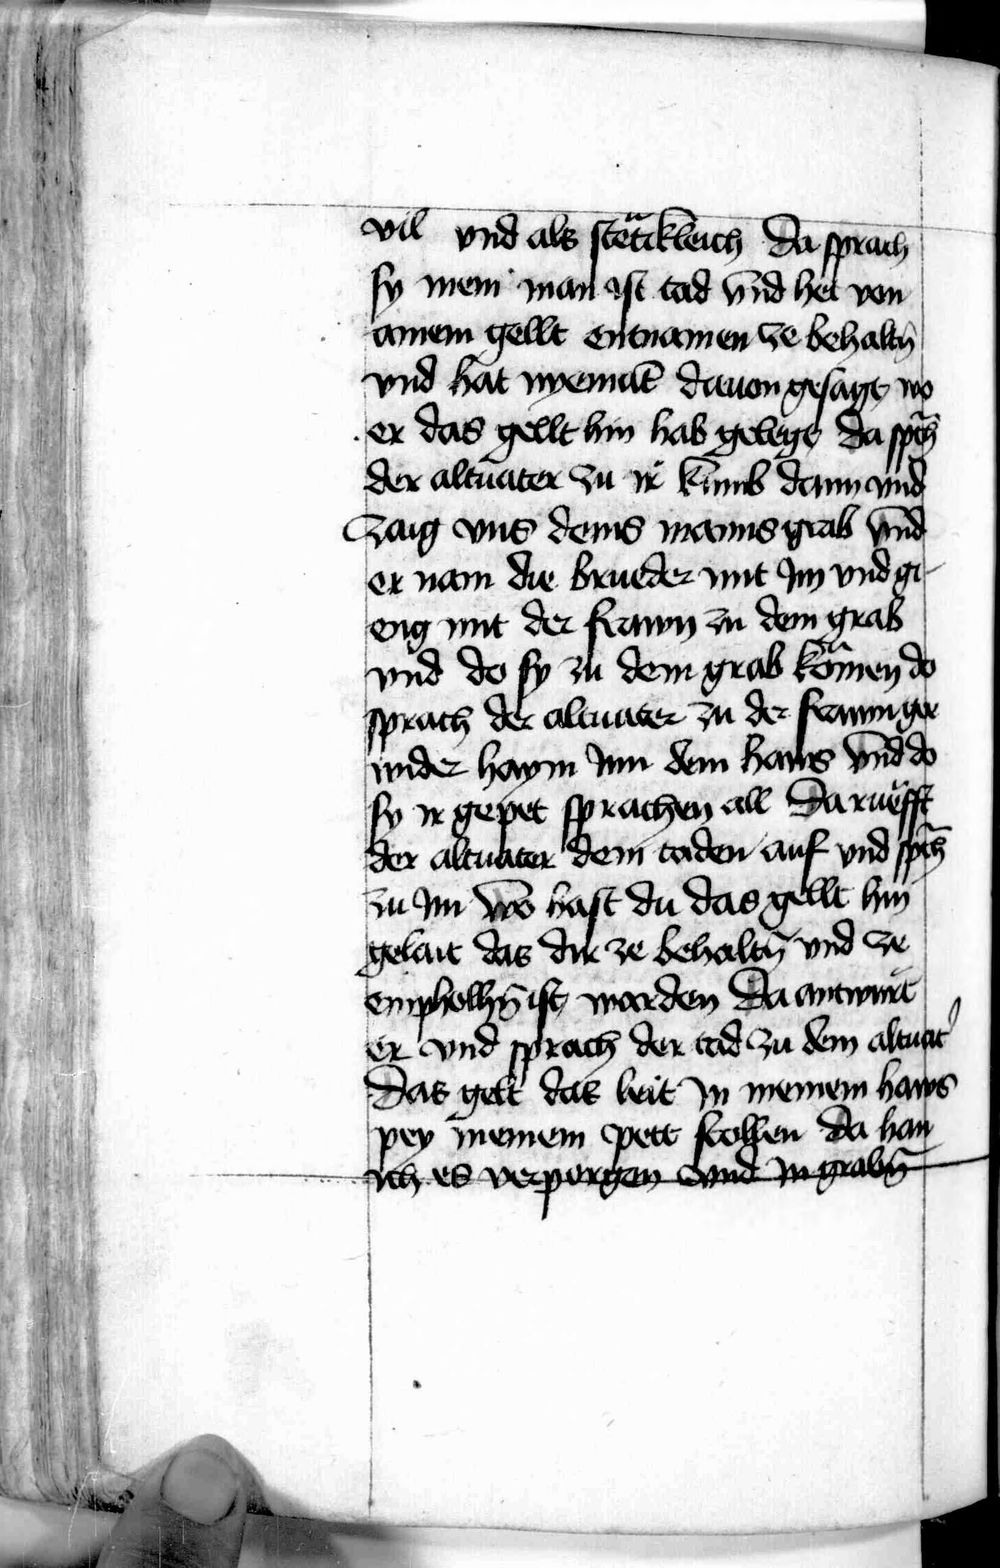 vil vnd als stetikleich Da sprach
sy mein man ist tod vnd het von
ainem gellt entnamen ze behaltn̄
vnd hat nyemāt dauon gesagt wo
er das gellt hin hab gelegt Da sp̄ch
der altuater zu ir kumb dann vnd
Zaig vns deins manns grab vnd
er nam die brueder mit Im vnd gi-
eng mit der frawn zu dem grab
vnd do sy zu dem grab kōmen do
sprach der altuater zu der frawn gee
wider haym Inn dem haws vnd do
sy ir gepet sprachen all Da ruefft
der altuater dem toden auf vnd sp̄ch
zu Im wo hast du das gellt hin
gelait das dir ze behaltn̄ vnd ze
empholhn̄ ist worden Da antwurt
er vnd sprach der tod zu dem altuat̉
Das gelt das leit In meinem haws
pey meinem pett stollen Da han
ich es verporgen vnd In grabn̄